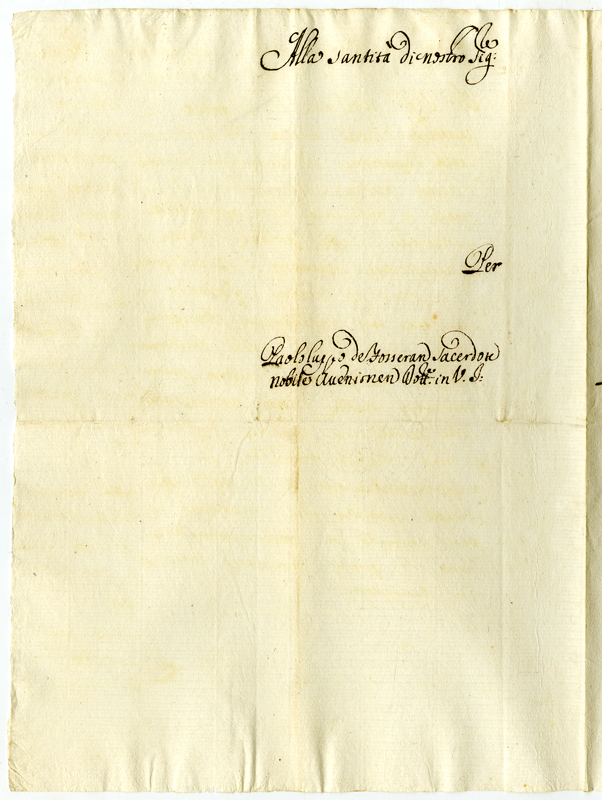 Alla Santità di nostro Sig:re
Per
Paolo de Josseran Sacerdote
nobile Avenionen Dott.re in V. J: